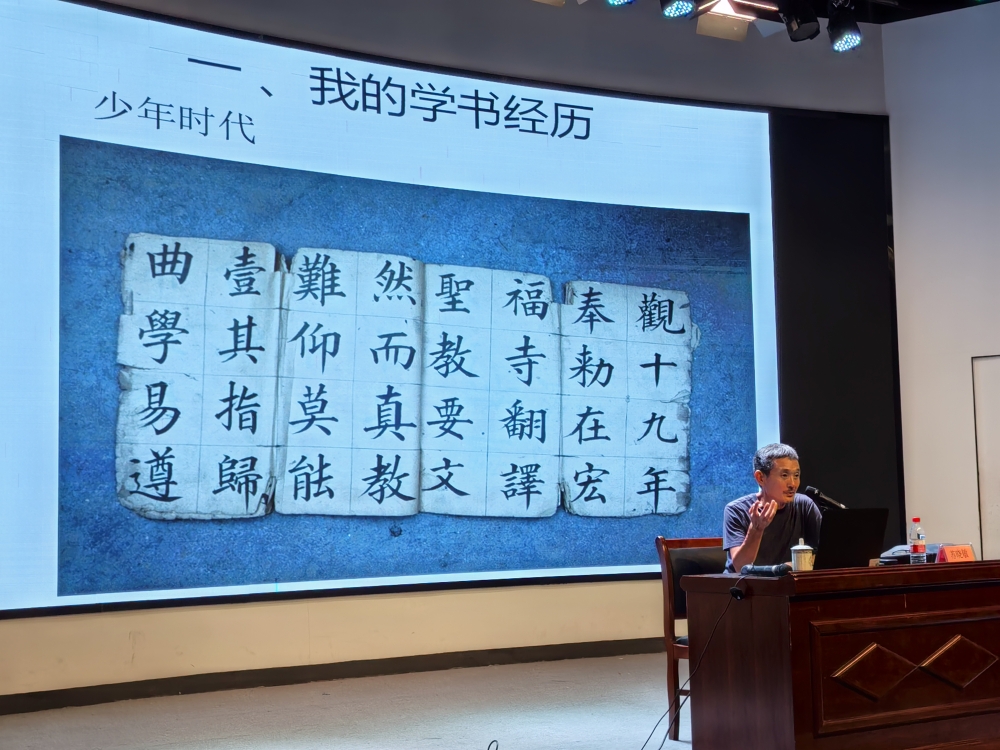 一、我的学书经历
少年时代
觀十九年
奉勅在宏
福寺翻譯
聖教要文
然而真教
難仰莫能
壹其指歸
曲學易遵